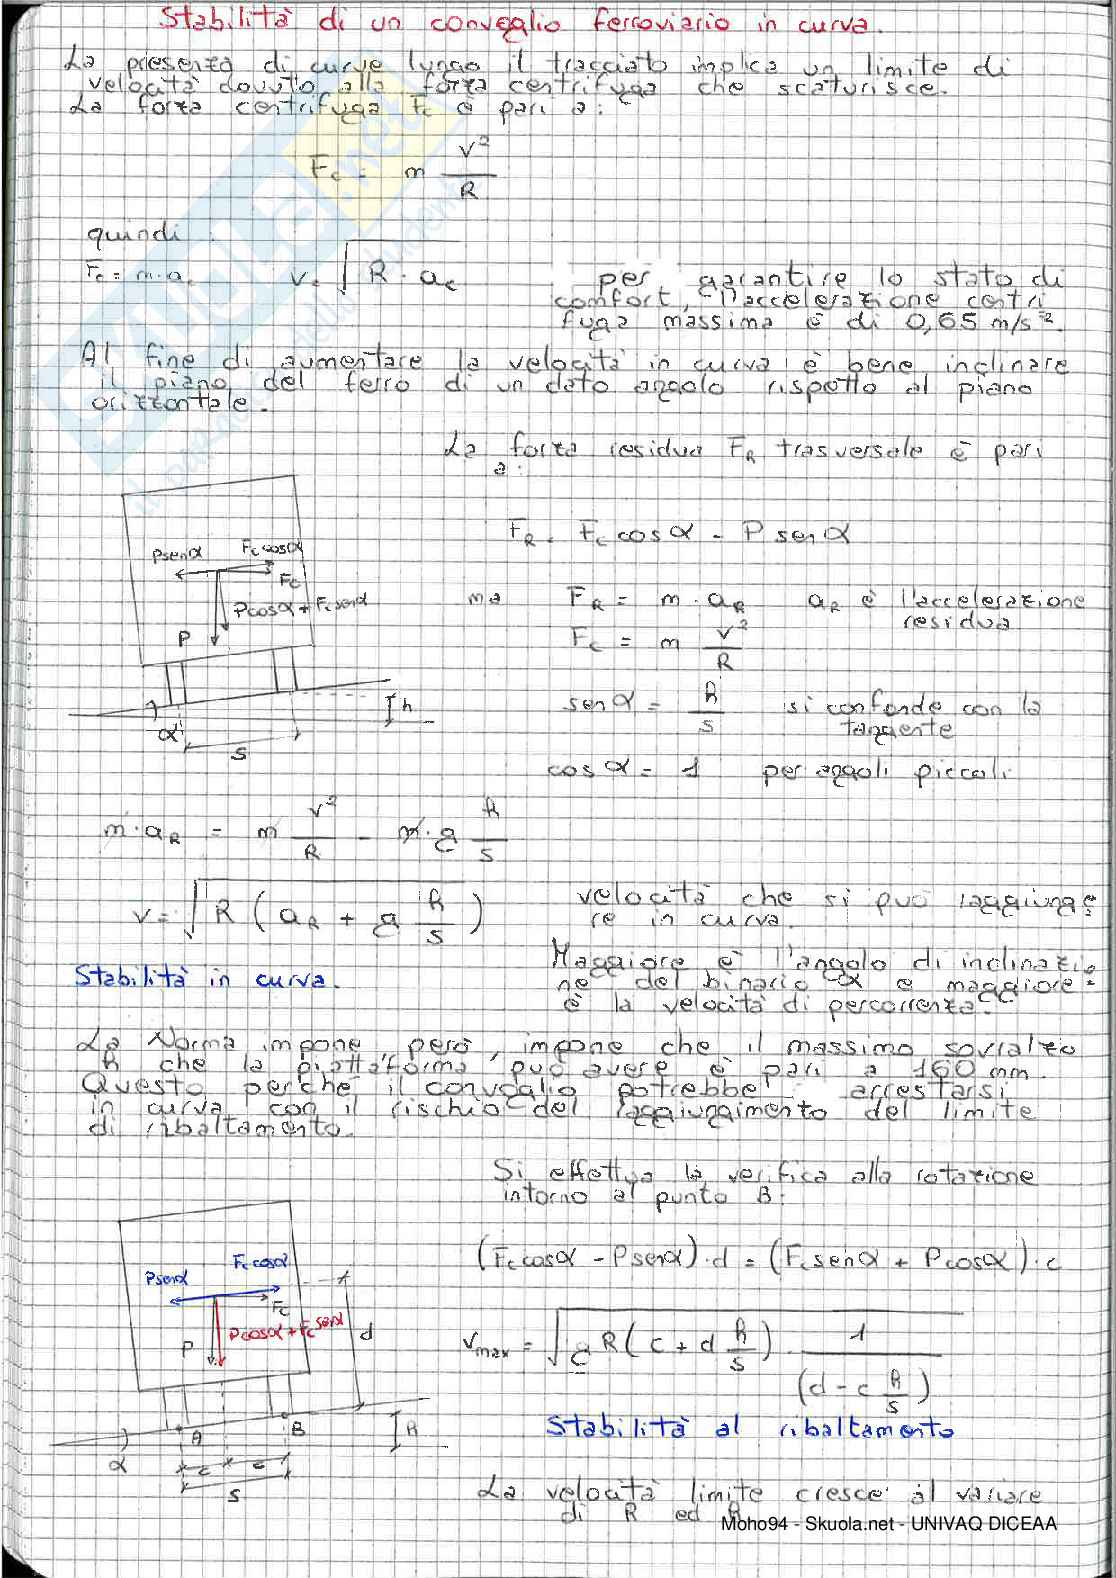 Stabilità di un convoglio ferroviario in curva.
La presenza di curve lungo il tracciato implica un limite di
velocità dovuto alla forza centrifuga che scaturisce.
La forza centrifuga Fc è pari a:
Fc = m v²/R
quindi:
Fc = m·ac
vc √R·ac
per garantire lo stato di
comfort, l'accelerazione centri
fuga massima è di 0,65 m/s².
Al fine di aumentare la velocità in curva è bene inclinare
il piano del ferro di un dato angolo rispetto al piano
orizzontale.
La forza residua FR trasversale è pari
a:
Psenα
Fc cosα
Fc
Pcosα + Fc senα
P
h
α
s
FR = Fc cosα - P senα
ma FR = m·aR aR è l'accelerazione
residua
Fc = m v²/R
senα = h/s si confonde con la
tangente
cosα = 1 per angoli piccoli
m·aR = m v²/R - m·g h/s
v = √R (aR + g h/s)
velocità che si può raggiunge
re in curva.
Stabilità in curva.
Maggiore è l'angolo di inclinazio
ne del binario α e maggiore
è la velocità di percorrenza.
La Norma impone però, impone che il massimo sovralzo
h che la piattaforma può avere è pari a 160 mm.
Questo perché il convoglio potrebbe arrestarsi
in curva con il rischio del raggiungimento del limite
di ribaltamento.
Si effettua la verifica alla rotazione
intorno al punto B:
Psenα
Fc cosα
Fc
Pcosα + Fc senα
P
d
A
B
h
α
c
c
s
(Fc cosα - P senα)·d = (Fc senα + P cosα)·c
vmax = √g R (c + d h/s) · 1/(d - c h/s)
Stabilità al ribaltamento
La velocità limite cresce al variare
di R ed h
Moho94 - Skuola.net - UNIVAQ DICEAA